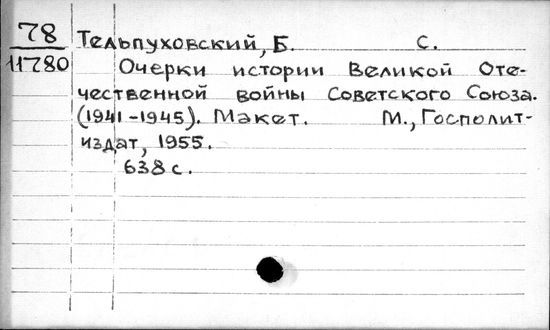 78
11780
Тельпуховский, Б. С.
Очерки истории Великой Оте-
чественной войны Советского Союза.
(1941-1945). Макет. М., Госполит-
издат, 1955.
638 с.